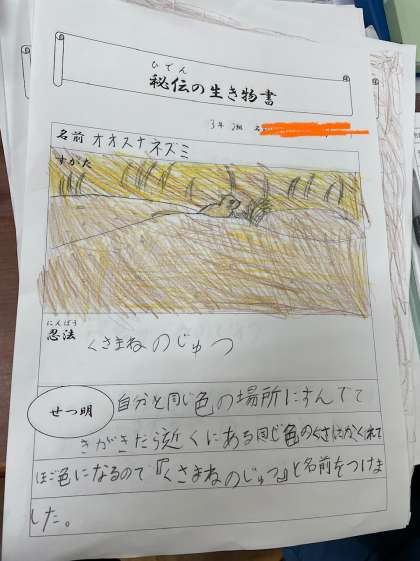 ひでん
秘伝の生き物書
3年 2組
名前 オオスナネズミ
すがた
にんぽう
忍法
くさまねのじゅつ
せつ明
自分と同じ色の場所にすんでて
きがきたら近くにある同じ色のくさにかくれて
ほご色になるので『くさまねのじゅつ』と名前をつけま
した。